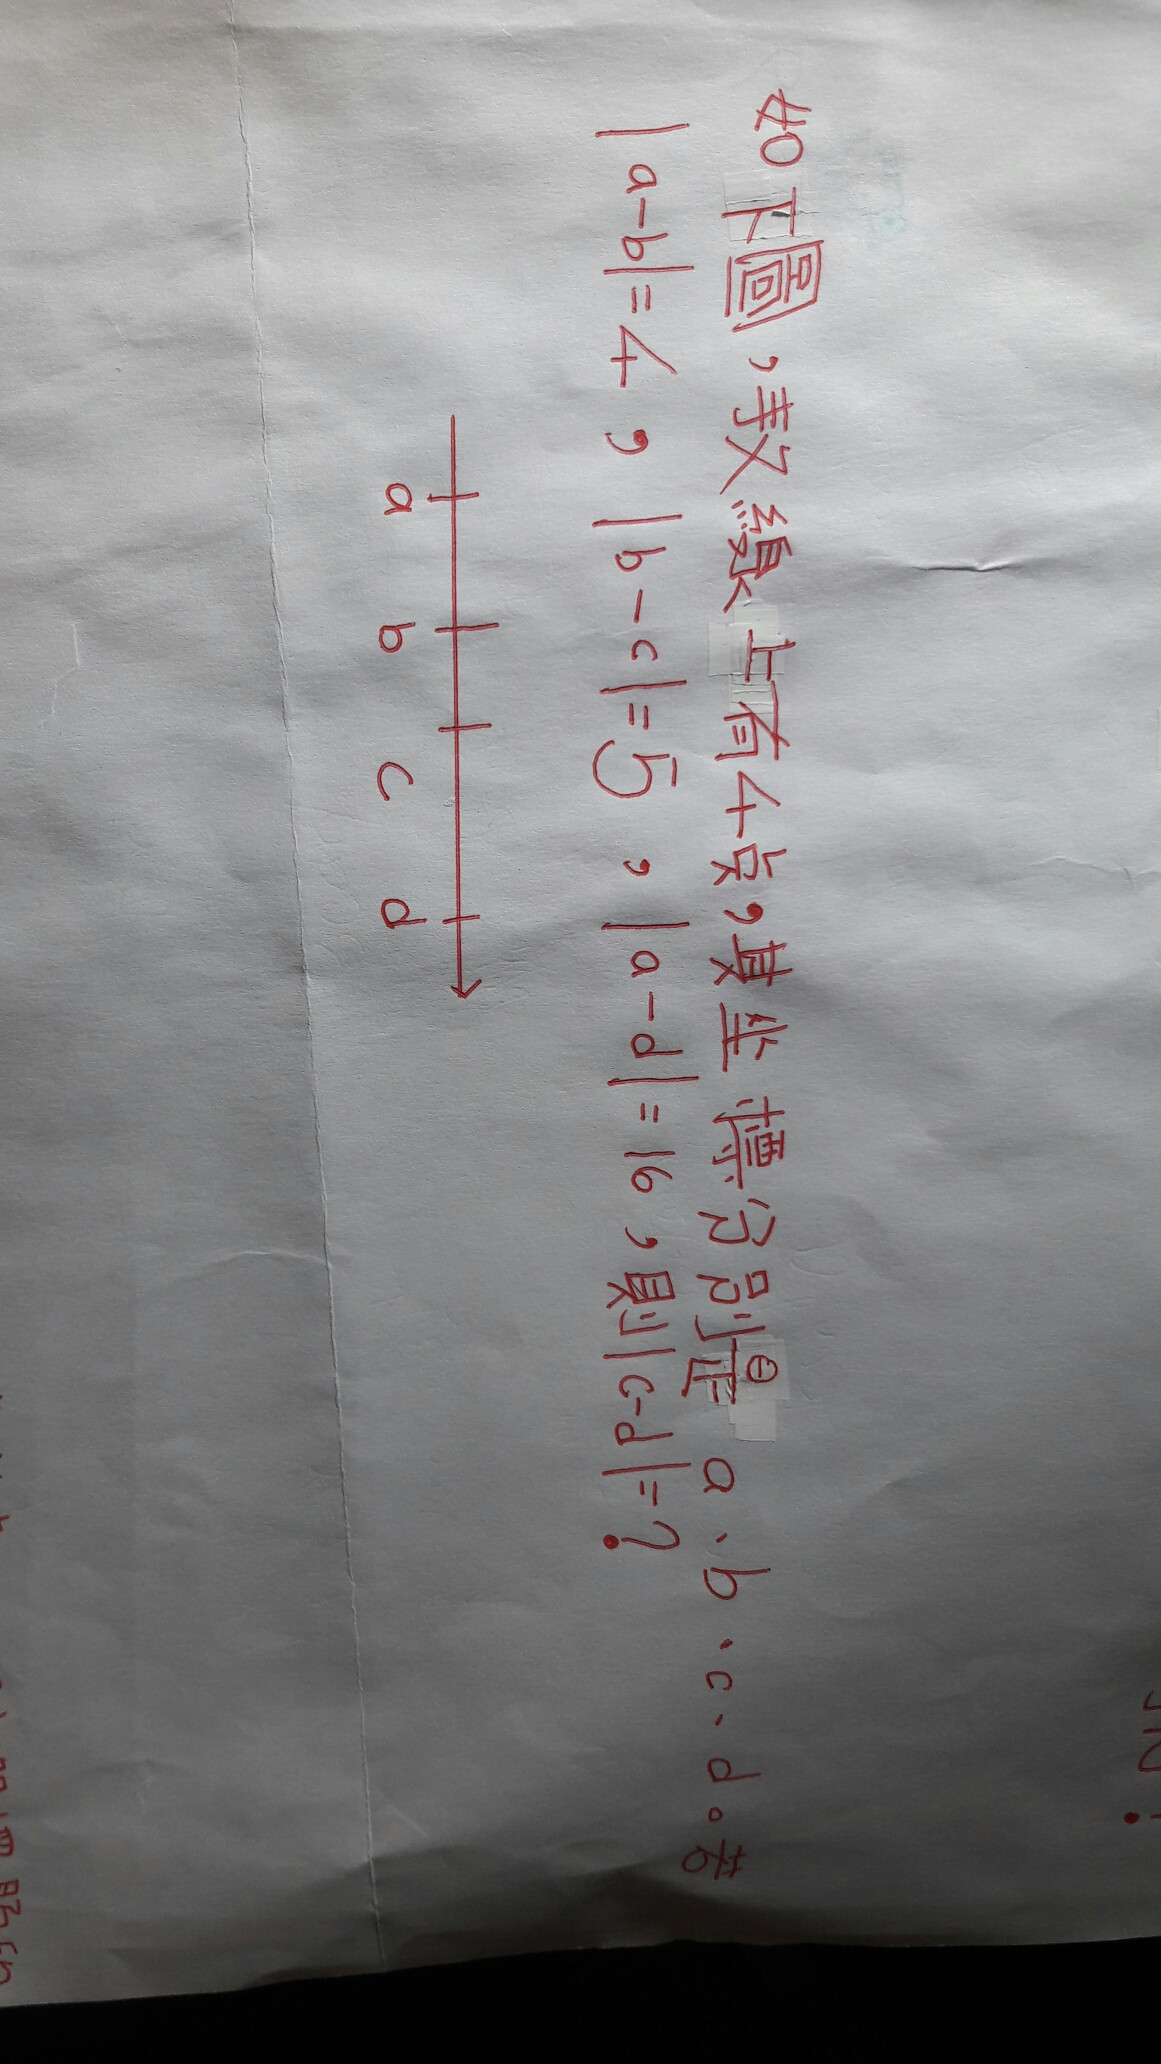 如下圖，數線上有4点，其坐標分別是 a、b、c、d。若
|a-b|=4，|b-c|=5，|a-d|=16，則|c-d|=?
a b c d